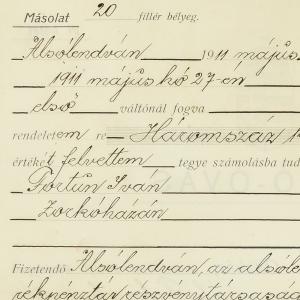 Másolat 20 fillér bélyeg.
Alsólendván 1911 május
1911 május hó 27-en
első váltónál fogva
rendeletem re Háromszáz
értékét felvettem tegye számolásba tud
Fortun Iván
Zorkóházán
Fizetendő Alsólendván, az alsóle
részvénytársaság